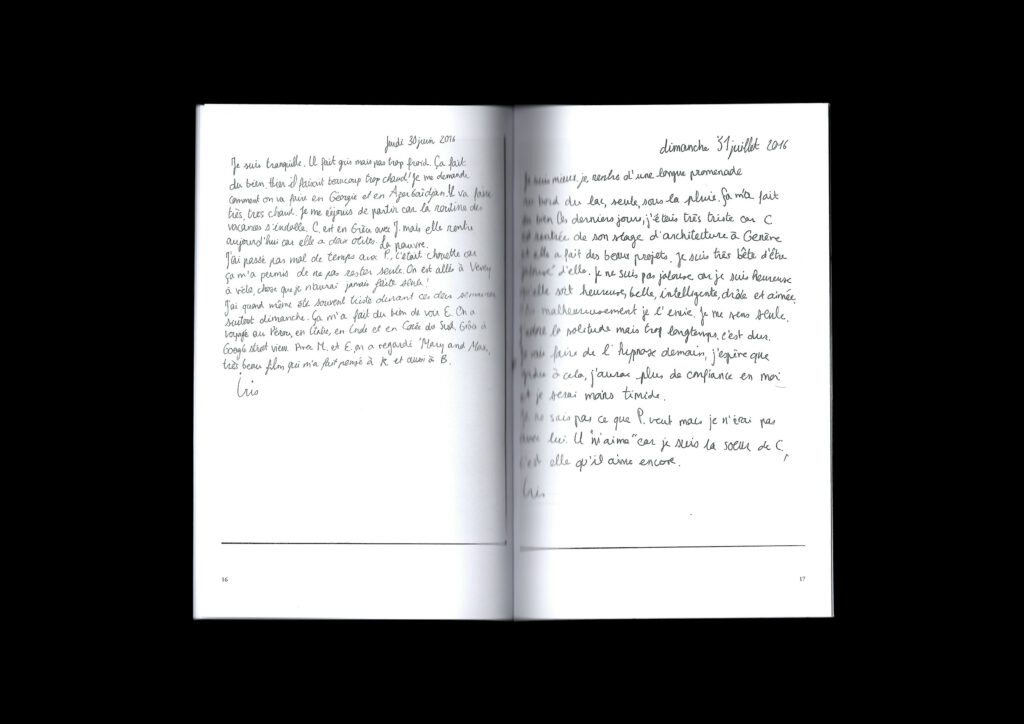 Jeudi 30 juin 2016
Je suis tranquille. Il fait gris mais pas trop froid. Ça fait
du bien. Hier il faisait beaucoup trop chaud! Je me demande
comment on va faire en Géorgie et en Azerbaïdjan. Il va faire
très, très chaud. Je me réjouis de partir car la routine des
vacances s'installe. C. est en Grèce avec J. mais elle rentre
aujourd'hui car elle a deux otites. La pauvre.
J'ai passé pas mal de temps avec P. C'était chouette car
ça m'a permis de ne pas rester seule. On est allés à Vevey
à vélo, chose que je n'aurai jamais faite seule!
J'ai quand même été souvent triste durant ces deux semaines
surtout dimanche. Ça m'a fait du bien de voir E. On a
voyagé au Pérou, en Chine, en Inde et en Corée du Sud. Grâce à
Google street view. Avec M. et E. on a regardé "Mary and Max,
très beau film qui m'a fait pensé à K. et aussi à B.
Iris
16
dimanche 31 juillet 2016
Je suis mieux, je rentre d'une longue promenade
au bord du lac, seule, sous la pluie. Ça m'a fait
du bien. Ces derniers jours, j'étais très triste car C
est rentrée de son stage d'architecture à Genève
et elle a fait des beaux projets. Je suis très bête d'être
"jalouse" d'elle. Je ne suis pas jalouse car je suis heureuse
qu'elle soit heureuse, belle, intelligente, drôle et aimée.
Mais malheureusement je l'envie. Je me sens seule.
J'adore la solitude mais trop longtemps, c'est dur.
Je vais faire de l'hypnose demain, j'espère que
grâce à cela, j'aurai plus de confiance en moi
et je serai moins timide.
Je ne sais pas ce que P. veut mais je n'irai pas
avec lui. Il "m'aime" car je suis la soeur de C,
c'est elle qu'il aime encore.
Iris
17